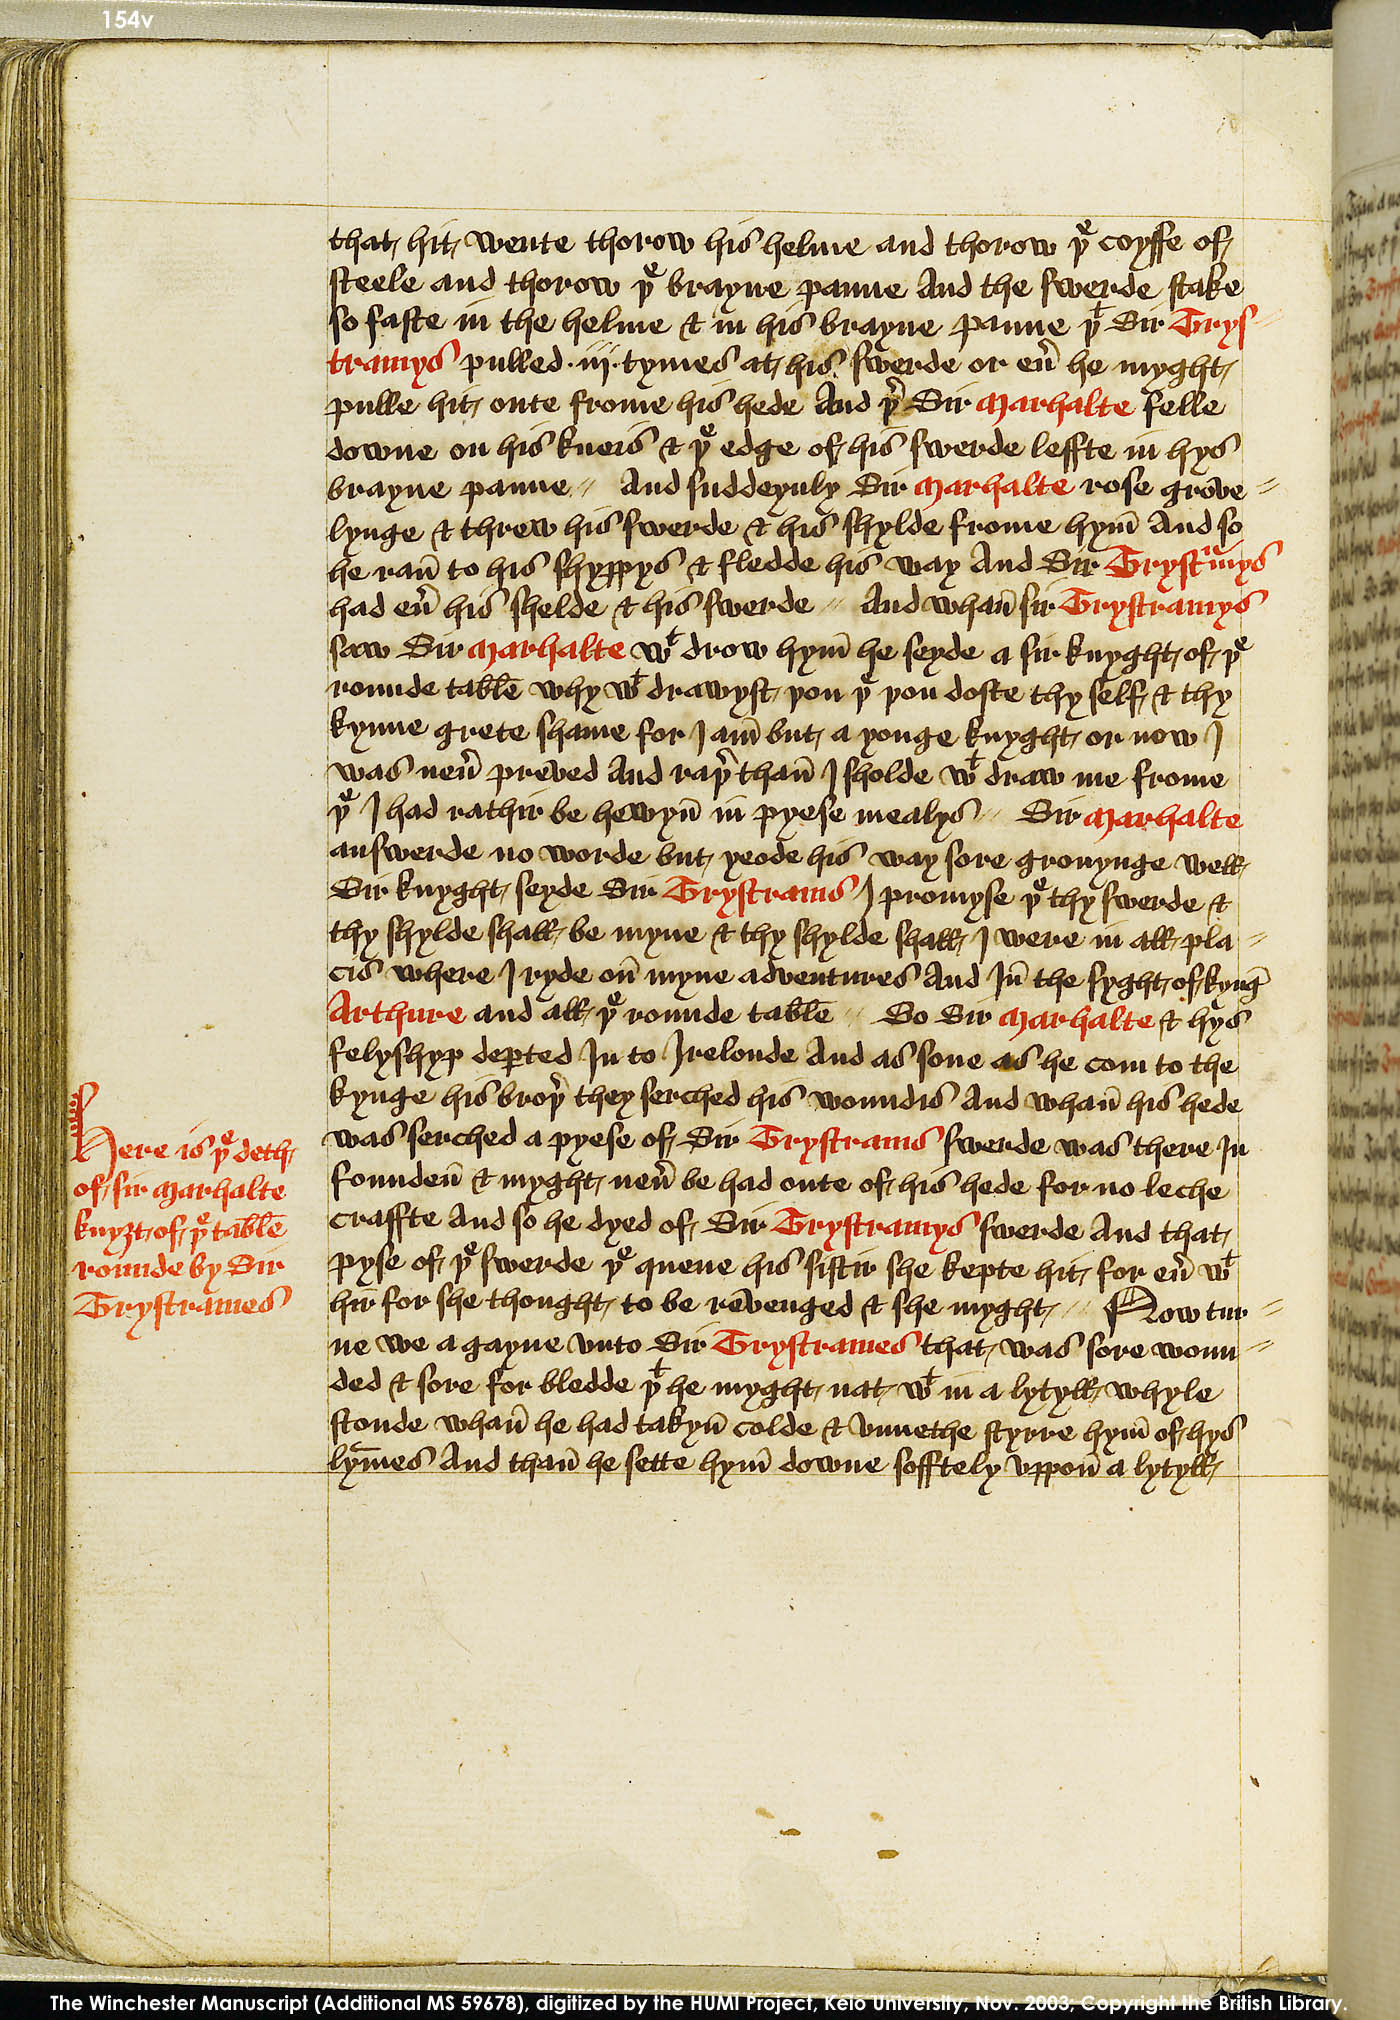 154v
that hit wente thorow his helme and thorow þͤ coyffe of
steele and thorow þͤ brayne panne And the swerde stake
so faste in the helme & in his brayne panne þᵗ Sir Trys=
tramys pulled ·iij· tymes at his swerde or eu̾ he myght
pulle hit oute frome his hede And þ̾ Sir Marhalte felle
downe on his kneis & þͤ edge of his swerde leffte in hys
brayne panne // And suddeynly Sir Marhalte rose grove=
lynge & threw his swerde & his shylde frome hym̄ And so
he ran̄ to his shyppys & fledde his way And Sir Trystᵃmys
had eu̾ his shelde & his swerde // And whan̄ sir Trystramys
saw Sir Marhalte wᵗ drow hym̄ he seyde a sir knyght of þͤ
rounde tablē why wᵗ drawyst þou þͤ þou doste thy self & thy
kynne grete shame for I am̄ but a yonge knyght or now I
was neu̾ preved And raþ̾ than̄ I sholde wᵗ draw me frome
þͤ I had rathir be hewyn̄ in pyese mealys // Sir Marhalte
answerde no worde but yeode his way sore gronynge well
Sir knyght seyde Sir Trystrams I promyse þͤ thy swerde &
thy shylde shall be myne & thy shylde shall I were in all pla=
cis where I ryde on̄ myne adventures And In̄ the syght of kynḡ
Arthure and all þͤ rounde tablē // So Sir Marhalte & hys
felyshyp deꝑted In to Irelonde And as sone as he com to the
kynge his broþ̾ they serched his woundis And whan̄ his hede
was serched a pyese of Sir Trystrams swerde was there In
founden̄ & myght neu̾ be had oute of his hede for no leche
craffte And so he dyed of Sir Trystramys swerde And that
pyse of þͤ swerde þͤ quene his sistir she kepte hit for eu̾ wᵗ
hir for she thought to be revenged & she myght // Now tur=
ne we agayne vnto Sir Trystrames that was sore woun=
ded & sore for bledde þᵗ he myght nat wᵗ in a lytyll whyle
stonde whan̄ he had takyn̄ colde & vnnethe styrre hym̄ of hys
lym̄es And than̄ he sette hym̄ downe sofftely vppon̄ a lytyll
Here is þͤ deth
of sir Marhalte
knyȝt of þͤ tablē
rounde by Sir
Trystrames
The Winchester Manuscript (Additional MS 59678), digitized by the HUMI Project, Keio University, Nov. 2003; Copyright the British Library.